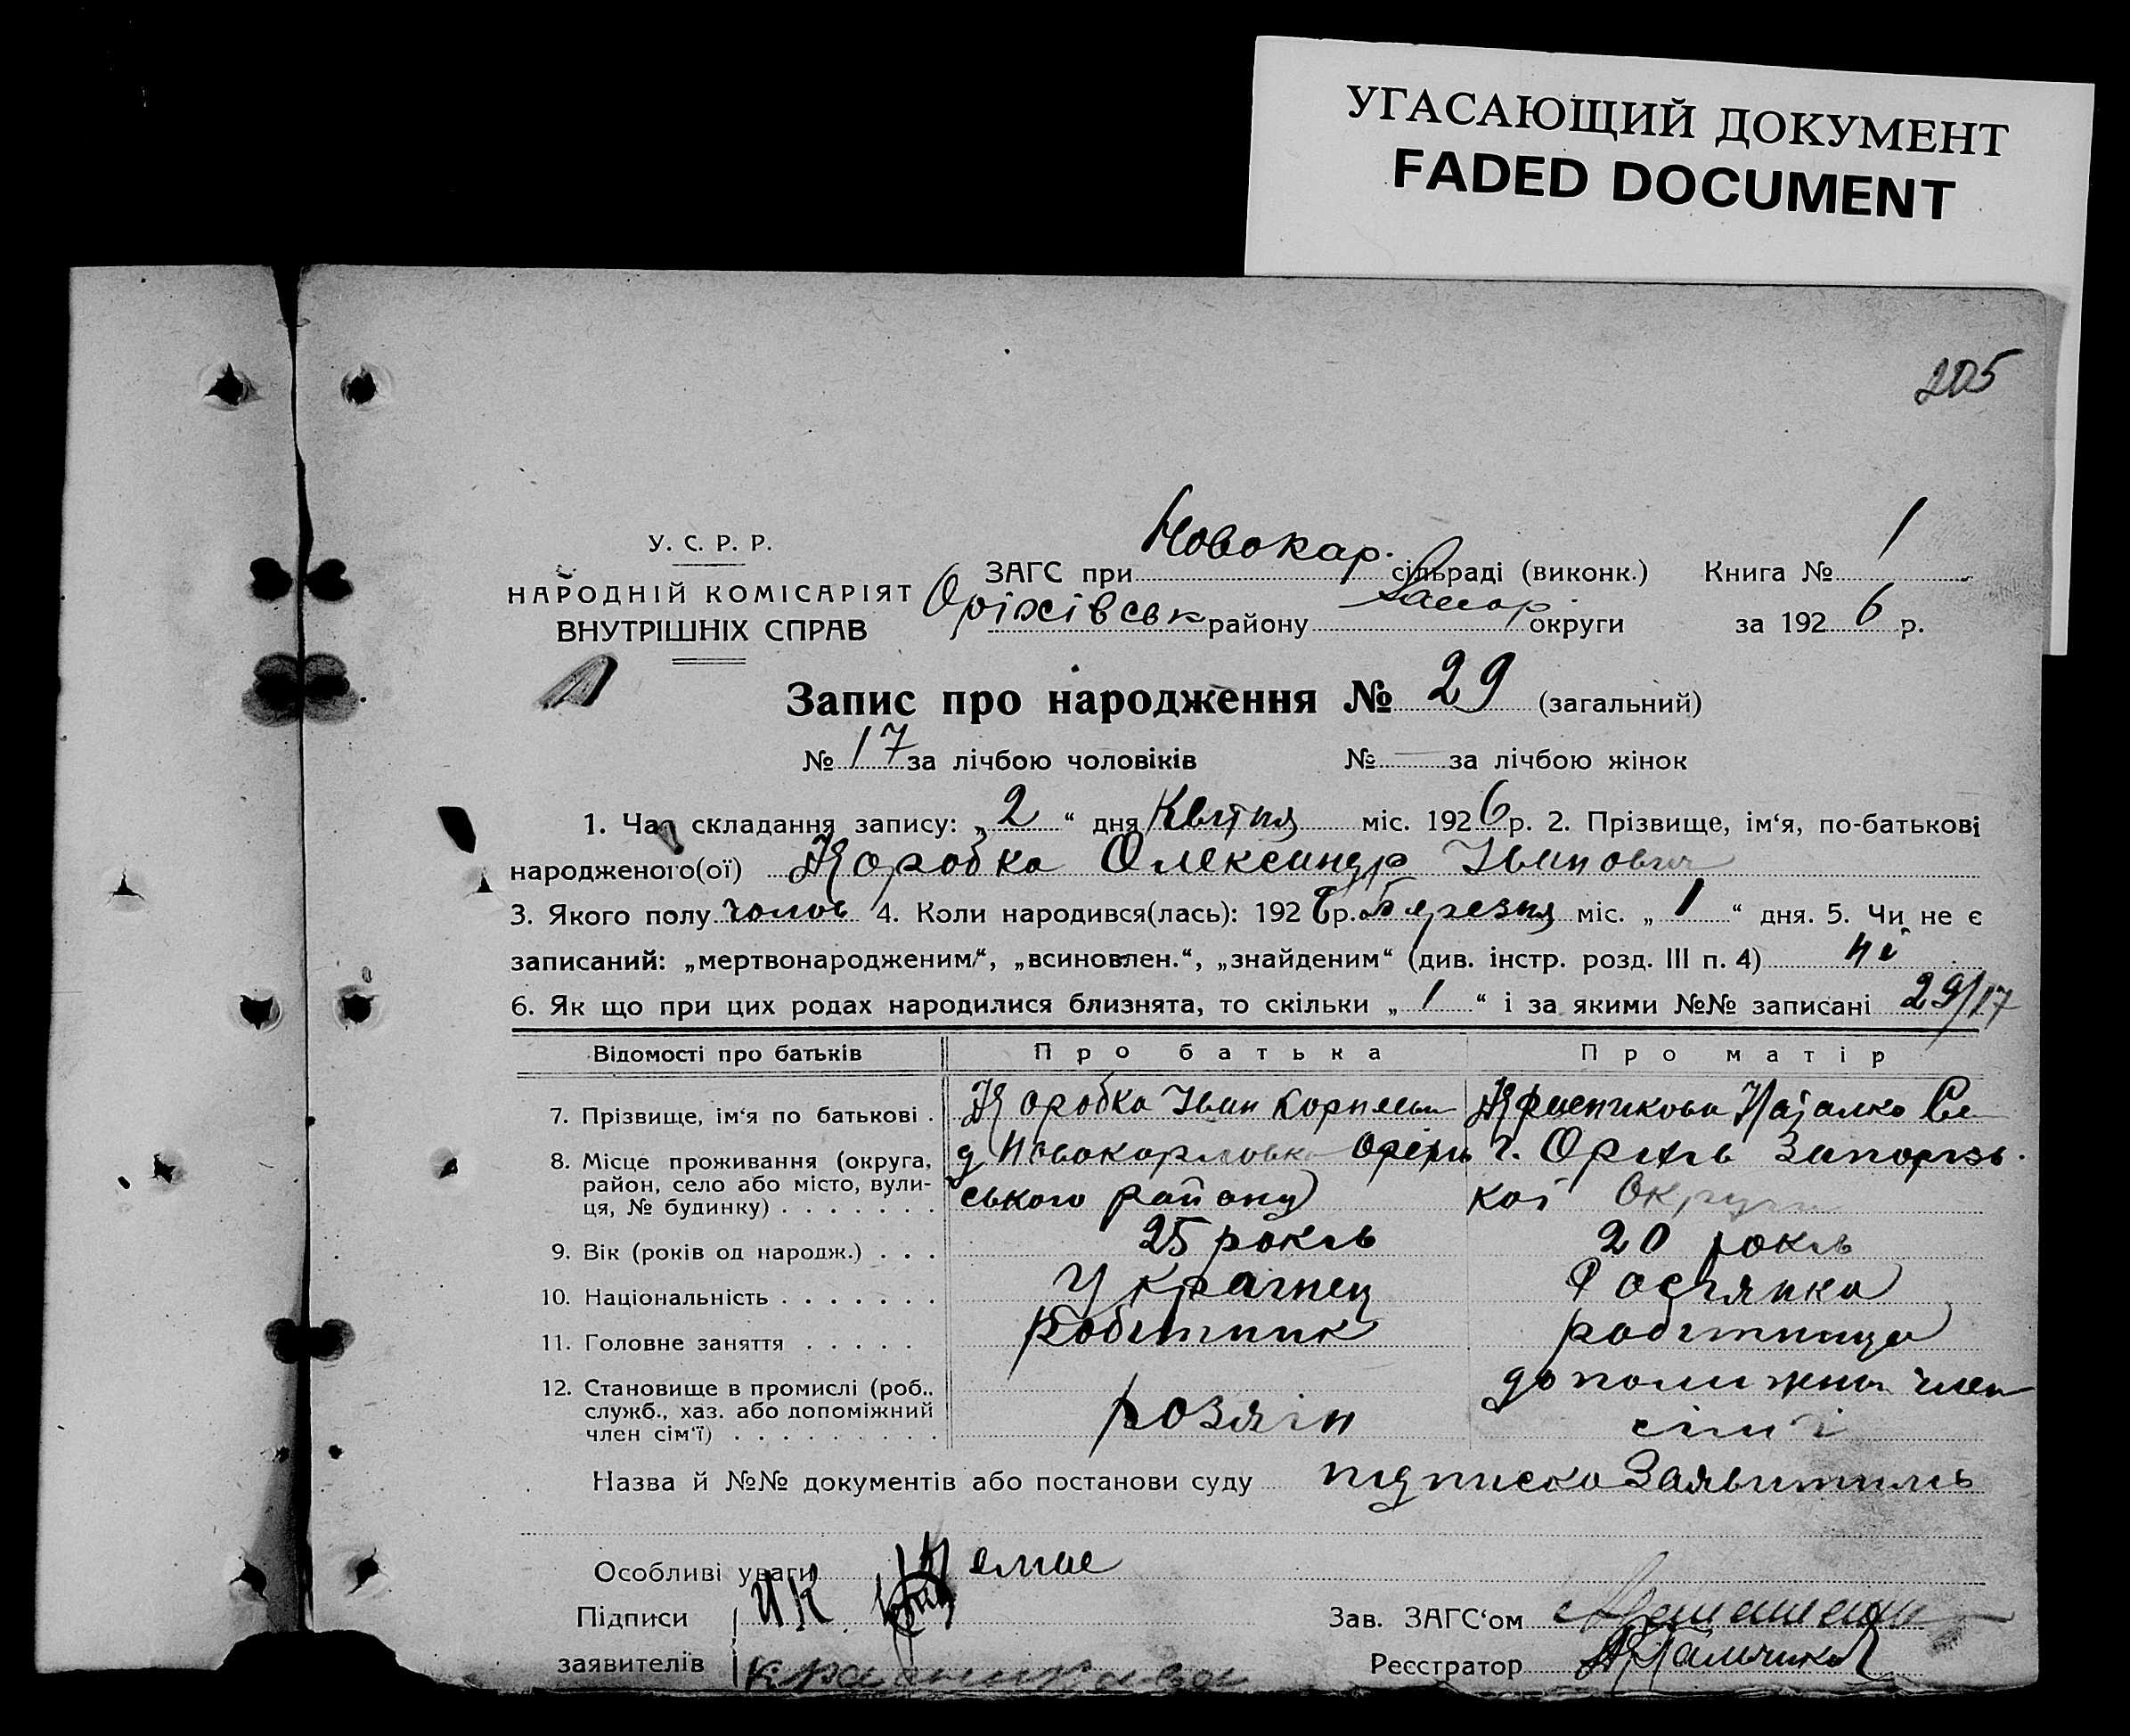 УГАСАЮЩИЙ ДОКУМЕНТ
FADED DOCUMENT
205
У. С. Р. Р.
НАРОДНІЙ КОМІСАРІЯТ
ВНУТРІШНІХ СПРАВ
ЗАГС при Новокар. сільраді (виконк.) Книга № 1
Оріхівськ району Запор округи за 1926 р.
Запис про народження № 29 (загальний)
№ 17 за лічбою чоловіків № — за лічбою жінок
1. Час складання запису: „2“ дня Квітня міс. 1926 р. 2. Прізвище, ім‘я, по-батькові
народженого(ої) Коробка Олександр Іванович
3. Якого полу чолов 4. Коли народився(лась): 1926 р. Березня міс. „1“ дня. 5. Чи не є
записаний: „мертвонародженим“, „всиновлен.“, „знайденим“ (див. інстр. розд. III п. 4) ні
6. Як що при цих родах народилися близнята, то скільки „1“ і за якими №№ записані 29/17
Відомості про батьків Про батька Про матір
7. Прізвище, ім‘я по батькові . Коробка Іван Наталка
8. Місце проживання (округа,
район, село або місто, вули-
ця, № будинку) . . . . . . .
ського району
г. Оріхів Запорізь-
кої Округи
9. Вік (років од народж.) . . . 25 років 20 років
10. Національність . . . . . . . Украінец Росіянка
11. Головне заняття . . . . . Робітник робітниця
12. Становище в промислі (роб.,
служб., хаз. або допоміжний
член сім‘ї) . . . . . . . . .
член
сім'ї
Назва й №№ документів або постанови суду підписка
Особливі уваги
Підписи
заявителів
ИК
Зав. ЗАГС‘ом
Реєстратор